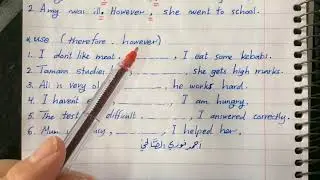 2. Amy was ill. However, she went to school.
4. use (therefore . however)
1. I don't like meat , I eat some kebabs.
2. Tamam studies , she gets high marks.
3. Ali is very ol , he works hard.
4. I havent e , I am hungry.
5. The test diff , I answered correctly.
6. Mum cy , I helped her.
احمد فوزي